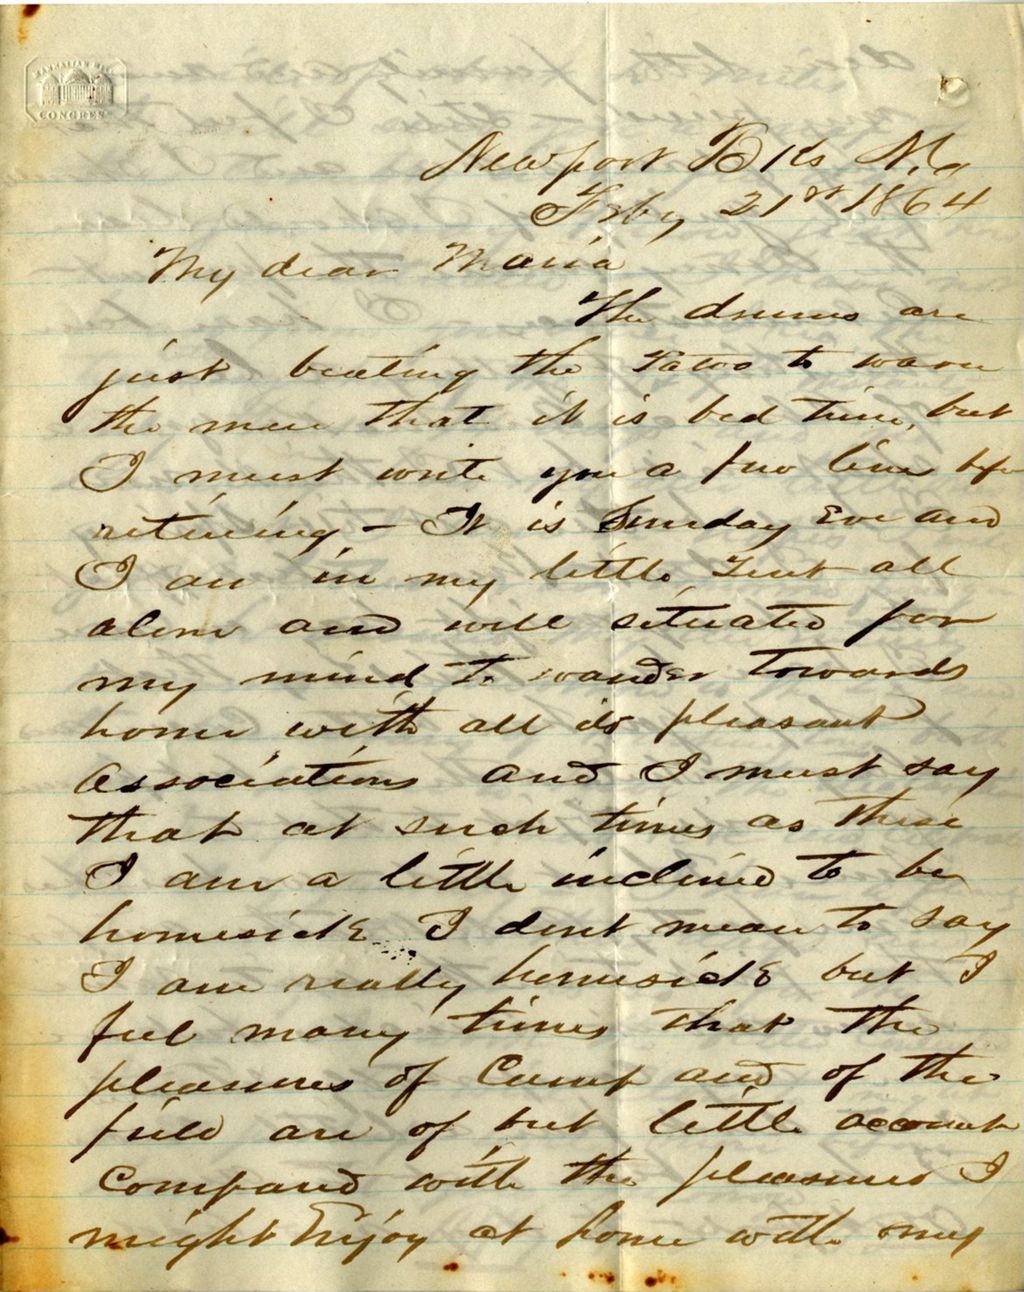 CONGRESS
Newport Bks
Feby 21st 1864
My dear Maria
The drums are
just beating the Tatoo to warn
the men that it is bed time, but
I must write you a few line bfr
retireing - It is Sunday Eve and
I am in my little Tent all
alone and well situated for
my mind to wander towards
home with all its pleasant
associations and I must say
that at such times as these
I am a little inclined to be
homesick I dont mean to say
I am really homesick but I
feel many times that the
pleasures of Camp and of the
field are of but little account
Compared with the pleasures I
might Enjoy at home with my